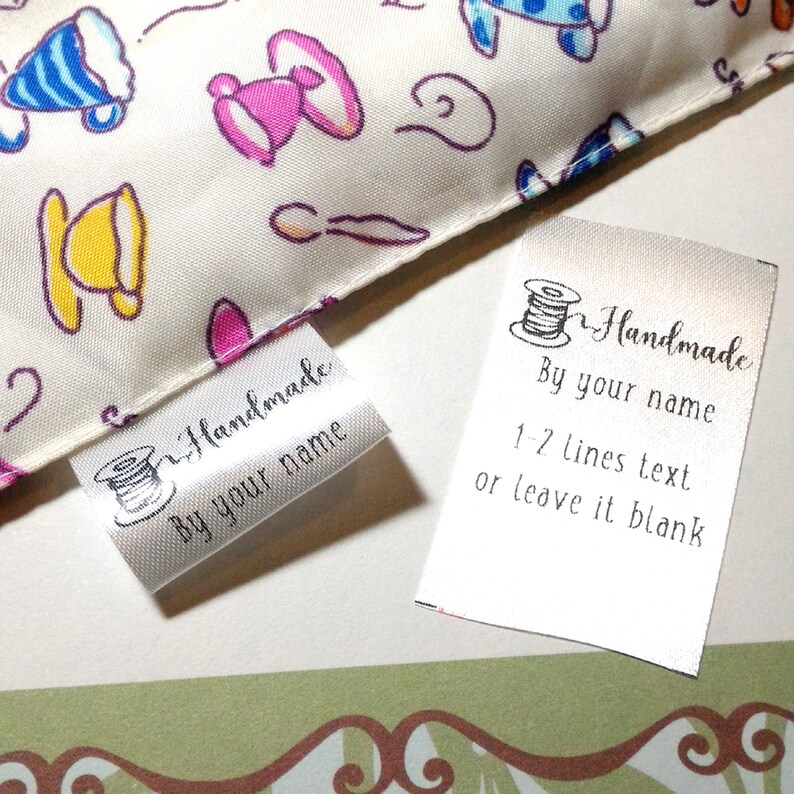 Handmade
By your name
Handmade
By your name
1-2 lines text
or leave it blank